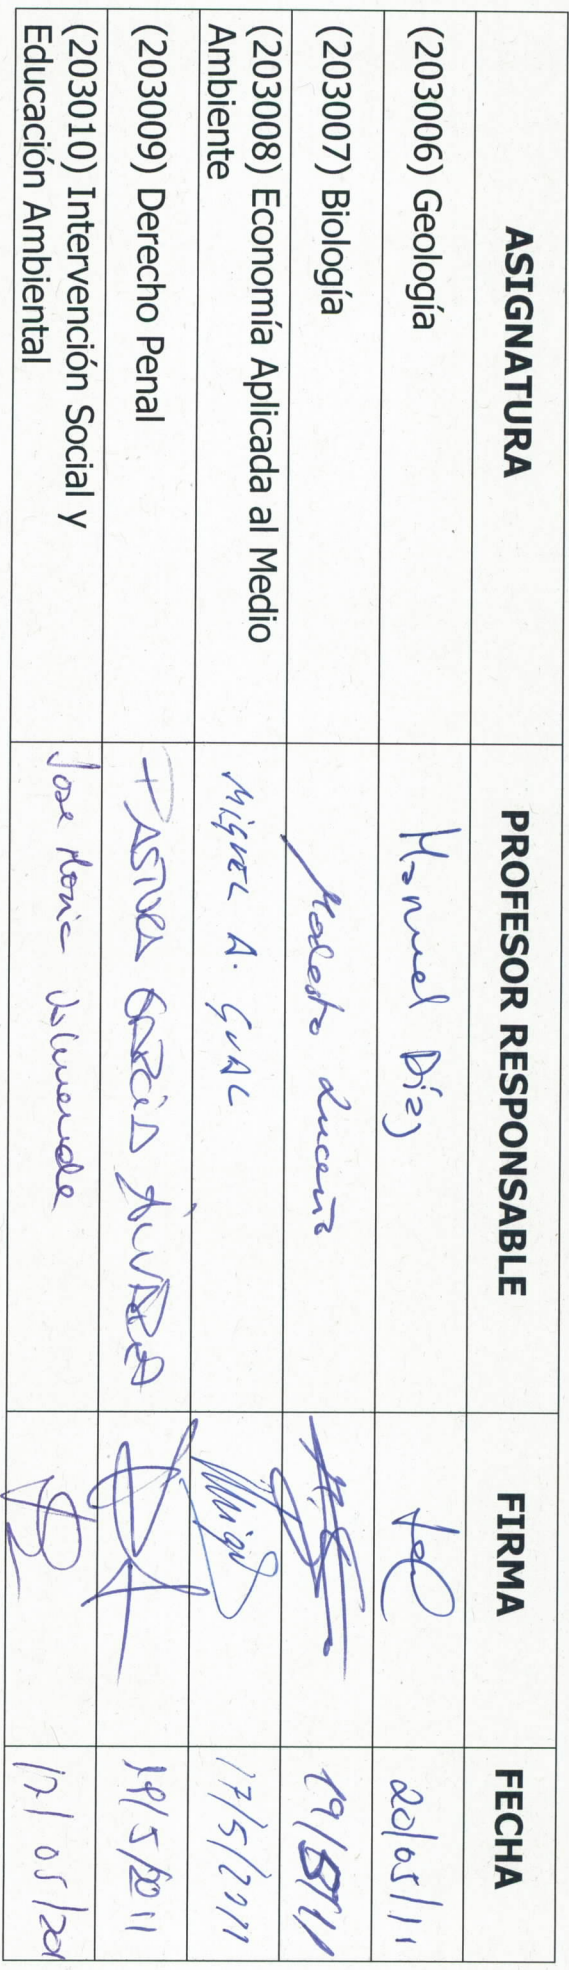 ASIGNATURA PROFESOR RESPONSABLE FIRMA FECHA
(203006) Geología Manuel Díez 20/05/11
(203007) Biología Modesto Luceño 19/5/11
(203008) Economía Aplicada al Medio
Ambiente MIGUEL A. GUAL 17/5/2011
(203009) Derecho Penal GARCÍA ÁLVAREZ 19/5/2011
(203010) Intervención Social y
Educación Ambiental Jose Maria Valcuende 17/05/20